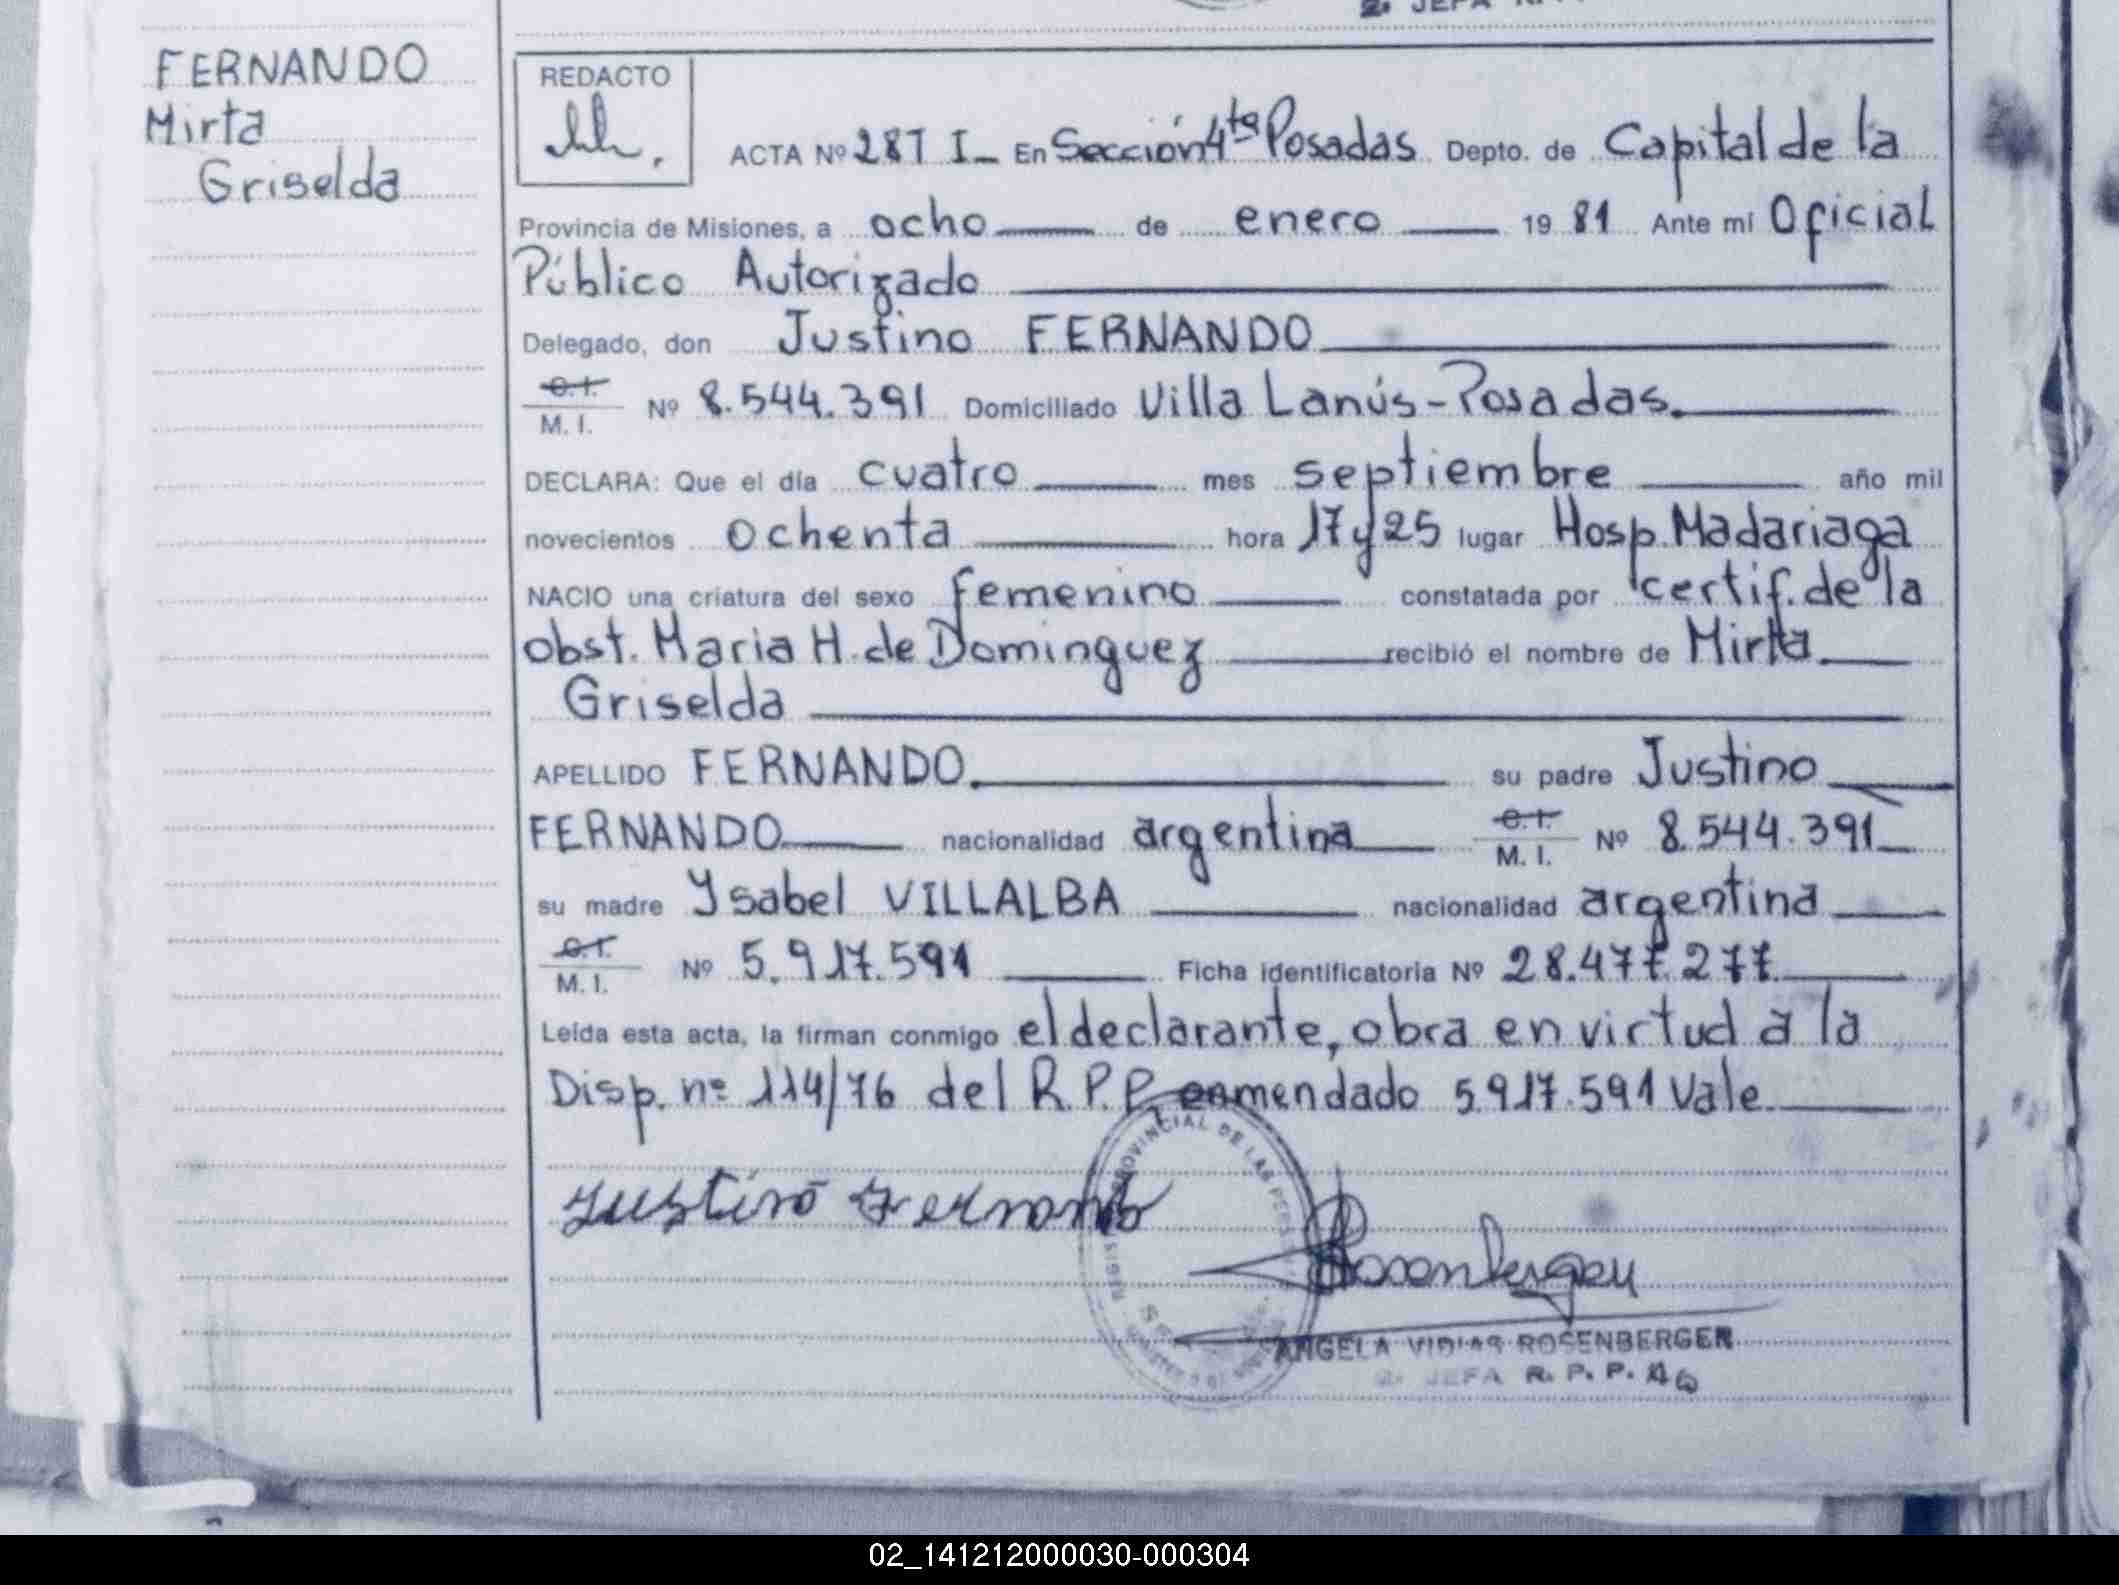 2. JEFA R.
FERNANDO
Mirta
Griselda
REDACTO
ACTA Nº 287 I_ En Sección 4ta Posadas Depto. de Capital de la
Provincia de Misiones, a ocho de enero 19 81 Ante mí Oficial
Público Autorizado
Delegado, don Justino FERNANDO
C.I.
M. I. Nº 8.544.391 Domiciliado Villa Lanús-Posadas.
DECLARA: Que el día cuatro mes septiembre año mil
novecientos ochenta hora 17 y 25 lugar Hosp. Madariaga
NACIO una criatura del sexo femenino constatada por certif. de la
obst. Maria H. de Dominguez recibió el nombre de Mirta
Griselda
APELLIDO FERNANDO. su padre Justino
FERNANDO nacionalidad argentina C.I. M. I. Nº 8.544.391
su madre Ysabel VILLALBA nacionalidad argentina
C.I.
M. I. Nº 5.917.591 Ficha identificatoria Nº 28.477.277.
Leída esta acta, la firman conmigo el declarante, obra en virtud a la
Disp. nº 114/76 del R.P.P, enmendado 5.917.591 Vale.
PROVINCIAL DE LAS PERS
Justino Fernando
Rosenberger
ANGELA VIDIAS ROSENBERGER
2. JEFA R. P. P. A
02_141212000030-000304